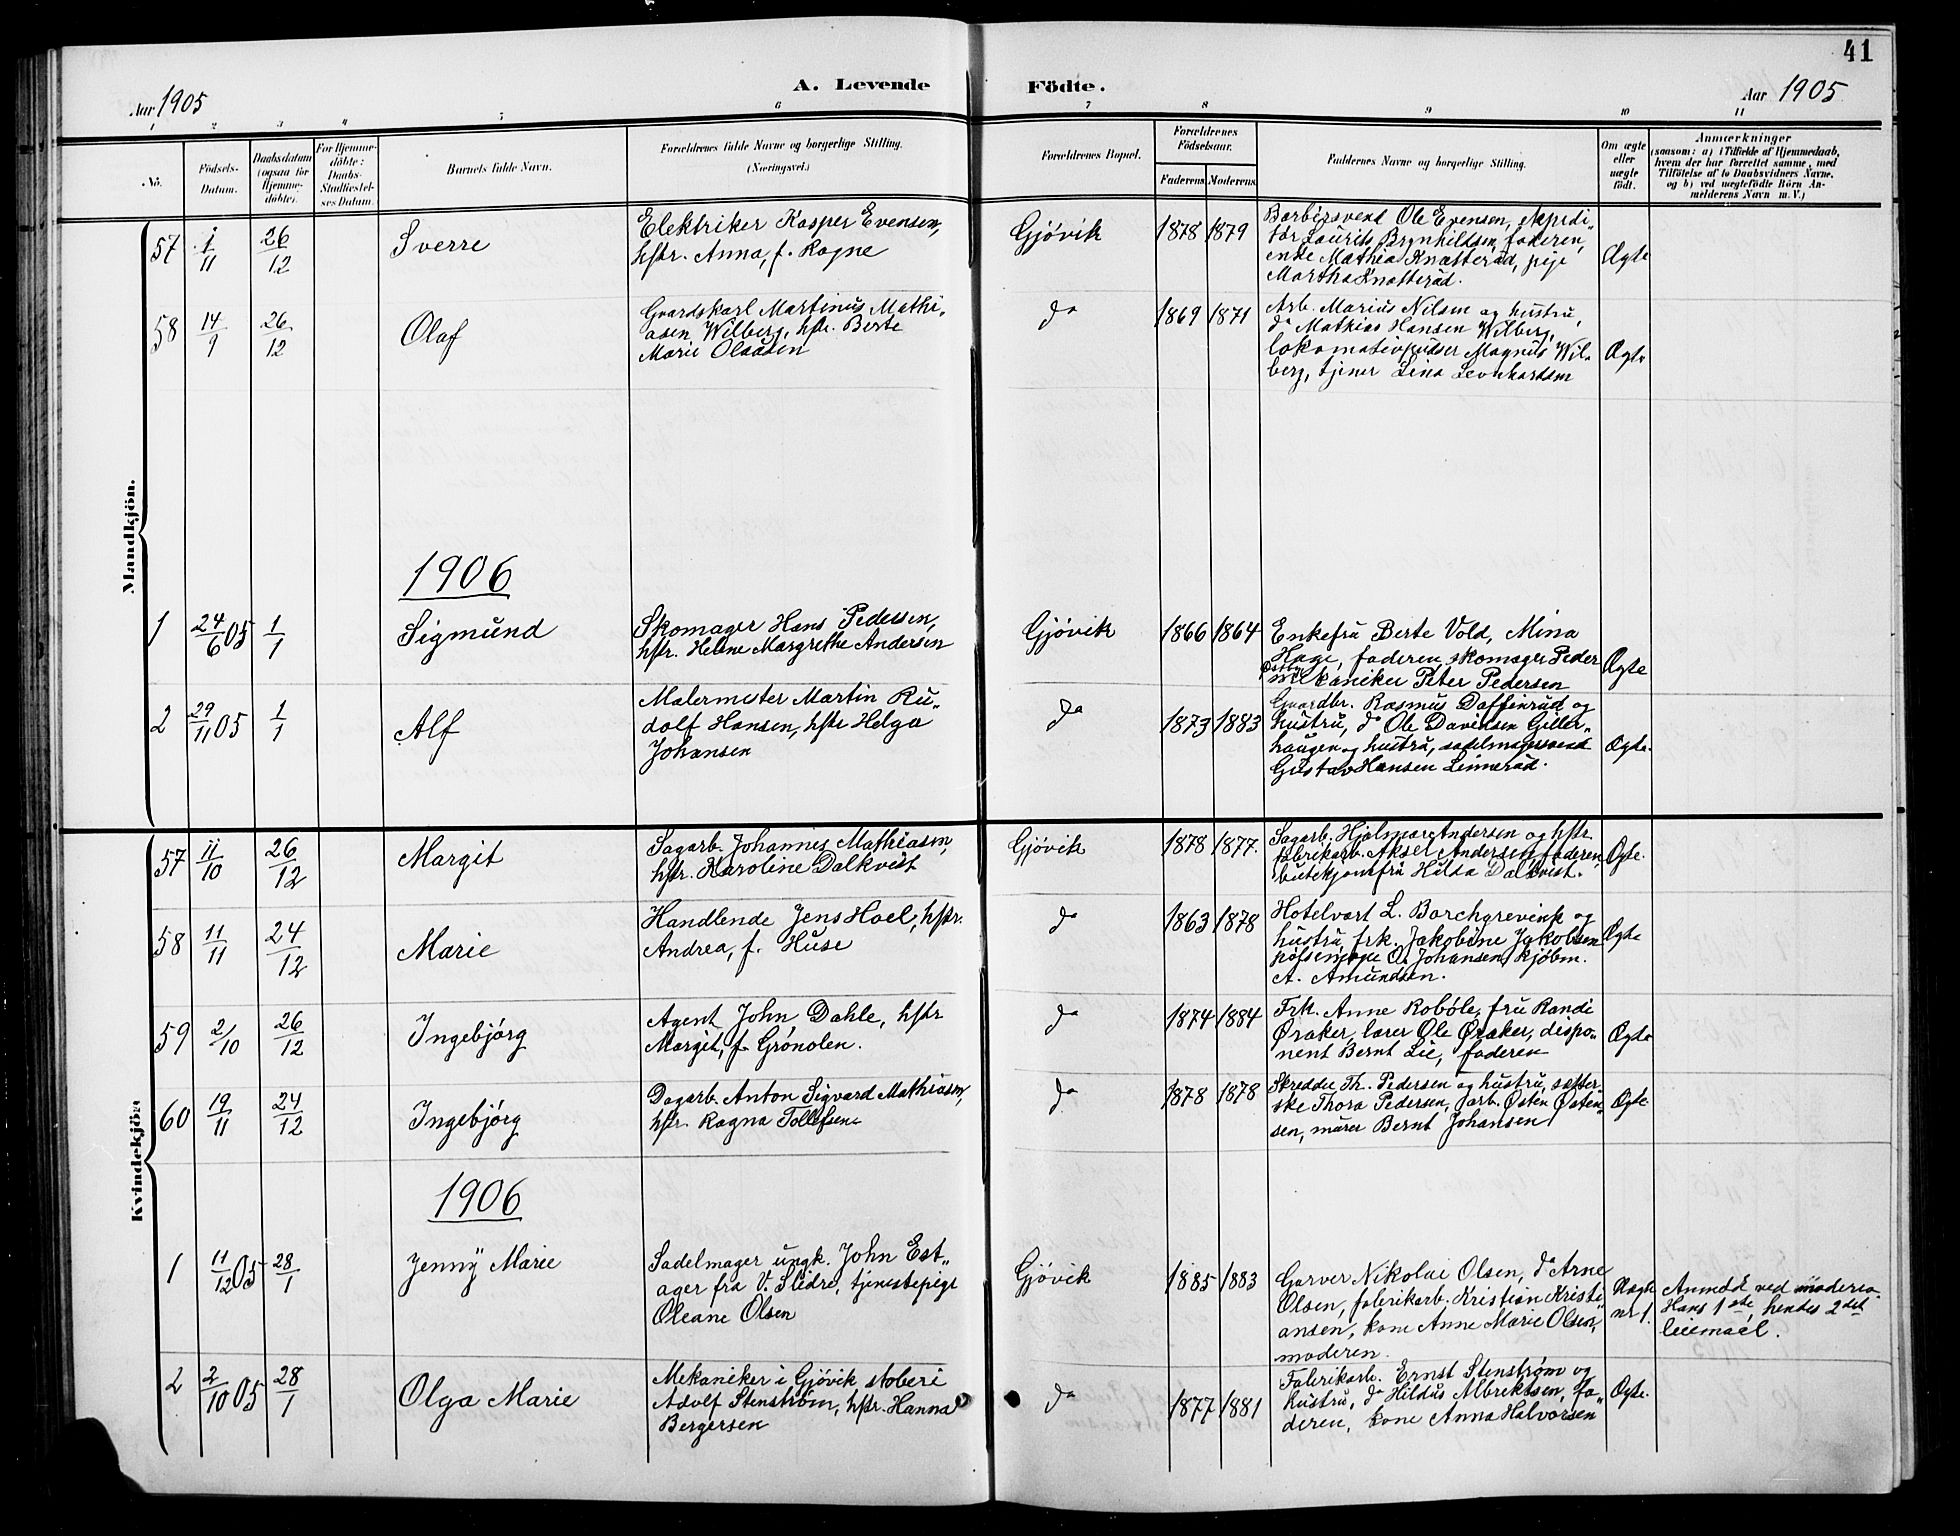 41
A. Levende Födte.
Aar 1905 Aar 1905
1 2 3 4 5 6 7 8 9 10 11
No.
Födsels-
Datum.
Daabsdatum
(ogsaa for
Hjemme-
döbte).
For Hjemme-
döbte:
Daabs-
Stadfæstel-
ses Datum.
Barnets fulde Navn.
Forældrenes fulde Navne og borgerlige Stilling.
(Næringsvei.)
Forældrenes Bopæl.
Forældrenes
Födselsaar.
Faderens Moderens
Faddernes Navne og borgerlige Stilling.
Om ægte
eller
uægte
født.
Anmærkninger
(saasom: a) i Tilfælde af Hjemmedaab,
hvem der har forrettet samme, med
Tilføielse af to Daabsvidners Navne.
og b) ved uægtefødte Børn An-
melderens Navn m. V.)
Mandkjön.
57 1/11 26/12 Sverre
Elektriker Kasper Evensen,
hstr. Anna, f. Ragne
Gjøvik 1878 1879
Barbersvend Ole Evensen, expedi-
tør Laurits Brynhildsen, faderen,
enke Mathea Knatterud, pige
Martha Knatterud.
Ægte
58 14/9 26/12 Olaf
Gaardskarl Martinus Mathi-
asen Wilberg, hstr. Berte
Marie Olausen
do 1869 1871
Arb. Marius Nilsen og hustru,
do Mathias Hansen Wilberg,
lokomativpudser Magnus Wil-
berg, tjener Lina Leonhardsen
Ægte
1906
1 24/6 05 1/1 Sigmund
Skomager Hans Pedersen,
hstr. Helene Margrethe Andersen
Gjøvik 1866 1864
Enkefru Berte Vold, Mina
Hage, faderen, skomager Peder
mekaniker Peter Pedersen
Ægte
2 29/11 05 1/1 Alf
Malermester Martin Ru-
dolf Hansen, hstr Helga
Johansen
do 1873 1883
Gaardbr. Rasmus Daffinrud og
hustru, do Ole Davidsen Giller-
haugen og hustru, sadelmagersvend
Gustav Hansen Linnerud.
Ægte.
Kvindekjön
57 11/10 26/12 Margit
Sagarb. Johannes Mathiasen,
hstr. Karoline Dalkvist
Gjøvik 1878 1877.
Sagarb. Hjalmar Andersen og hstr.
fabrikarb. Aksel Andersen, faderen,
butikjomfru Hilda Dalkvist.
Ægte.
58 11/11 24/12 Marie
Handlende Jens Hoel, hstr.
Andrea, f. Huse
do 1863 1878
Hotelvært L. Borchgrevink og
hustru, frk. Jakobine Jakobsen
pølsemager O. Johansen, kjøbm.
A. Amundsen.
Ægte
59 2/10 26/12 Ingebjørg
Agent John Dahle, hstr
Margit, f. Grønolen.
do 1874 1884
Frk. Anne Robøle, fru Randi
Øraker, lærer Ole Øraker, dispo-
nent Bernt Lie, faderen
Ægte
60 19/11 24/12 Ingebjørg
Dagarb. Anton Sigvard Mathiasen,
hstr. Ragna Tollefsen
do 1878 1878
Skredder Th. Pedersen og hustru, søster-
ske Thora Pedersen, Jarb. Østen Østen-
sen, murer Bernt Johansen
Ægte
1906
1 11/12 05 28/1 Jenny Marie
Sadelmager ungk. John Est-
ager fra V. Slidre, tjenestepige
Oleane Olsen
Gjøvik 1885 1883
Garver Nikolai Olsen, do Arne
Olsen, fabrikarb. Kristian Kristi-
ansen, kone Anne Marie Olsen,
moderen.
Uægte
nr 1.
Anmeldt ved moderen.
Hans 1ste, hendes 2det
leiemaal.
2 2/10 05 28/1 Olga Marie
Mekaniker i Gjøvik støberi
Adolf Stenstrøm, hstr. Hanna
Bergersen
do 1877 1881
Fabrikarb. Ernst Stenstrøm og
hustru, do Hildus Albrektsen, fa-
deren, kone Anna Halvorsen
Ægte.